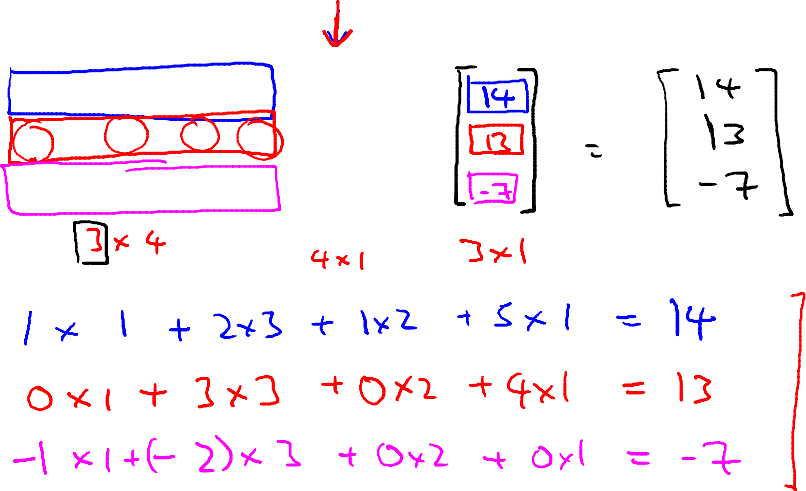 14 14
13 = 13
-7 -7
3 × 4 4×1 3×1
1 × 1 + 2×3 + 1×2 + 5×1 = 14
0×1 + 3×3 + 0×2 + 4×1 = 13
-1×1+(-2)×3 + 0×2 + 0×1 = -7